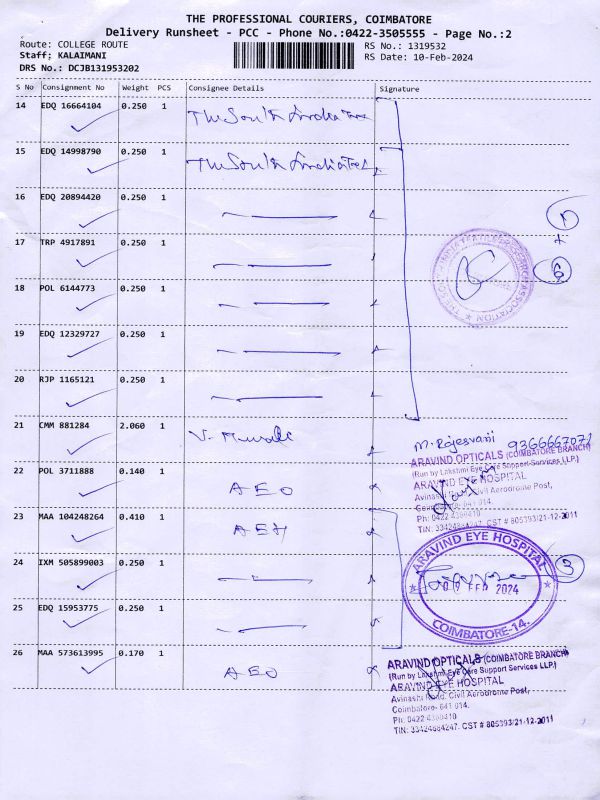 THE PROFESSIONAL COURIERS, COIMBATORE
Delivery Runsheet - PCC - Phone No.:0422-3505555 - Page No.:2
Route: COLLEGE ROUTE
Staff: KALAIMANI
DRS No.: DCJB131953202
RS No.: 1319532
RS Date: 10-Feb-2024
S No Consignment No Weight PCS Consignee Details Signature
14 EDQ 16664104 0.250 1 The South India
15 EDQ 14998790 0.250 1 The South India
16 EDQ 20894420 0.250 1
17 TRP 4917891 0.250 1
18 POL 6144773 0.250 1
19 EDQ 12329727 0.250 1
20 RJP 1165121 0.250 1
21 CMM 881284 2.060 1
M. Rajesvani 9366667072
22 POL 3711888 0.140 1 AEO
ARAVIND OPTICALS (COIMBATORE BRANCH)
(Run by Lakshmi Eye Care Support Services LLP.)
ARAVIND EYE HOSPITAL
Avinashi Road, Civil Aerodrome Post,
Coimbatore- 641 014.
Ph: 0422 4360410
TIN: 33424884247. CST # 805393/21-12-2011
23 MAA 104248264 0.410 1 AEH
24 IXM 505899003 0.250 1
25 EDQ 15953775 0.250 1
ARAVIND EYE HOSPITAL
FEB 2024
COIMBATORE-14.
3
26 MAA 573613995 0.170 1 AEO
ARAVIND OPTICALS (COIMBATORE BRANCH)
(Run by Lakshmi Eye Care Support Services LLP.)
ARAVIND EYE HOSPITAL
Avinashi Road, Civil Aerodrome Post,
Coimbatore- 641 014.
Ph: 0422 4360410
TIN: 33424884247. CST # 805393/21-12-2011